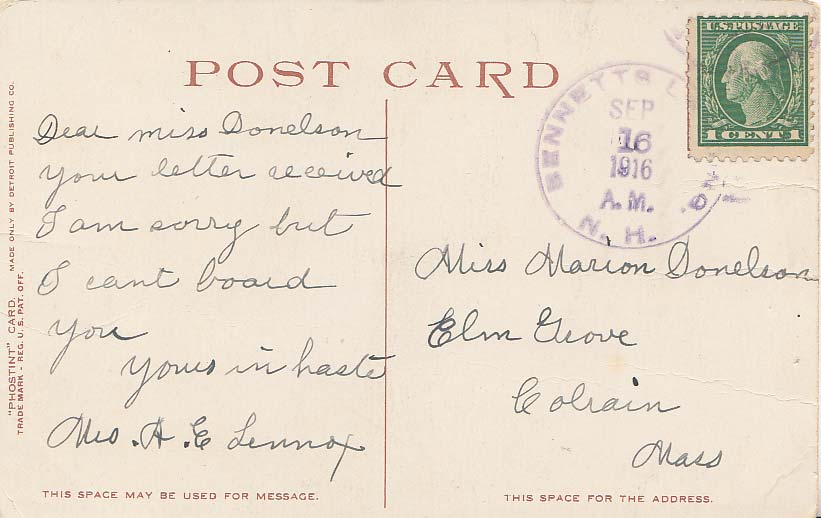 POST CARD
Dear miss Donelson
your letter received
I am sorry but
I cant board
you
yours in haste
Mrs. H. E Lennox
THIS SPACE MAY BE USED FOR MESSAGE.
"PHOSTINT" CARD. MADE ONLY BY DETROIT PUBLISHING CO.
TRADE MARK - REG. U.S. PAT. OFF.
BENNETTS
SEP
16
1916
A.M.
N. H.
U.S. POSTAGE
1 CENT 1
Miss Marion Donelson
Elm Grove
Colrain
Mass
THIS SPACE FOR THE ADDRESS.